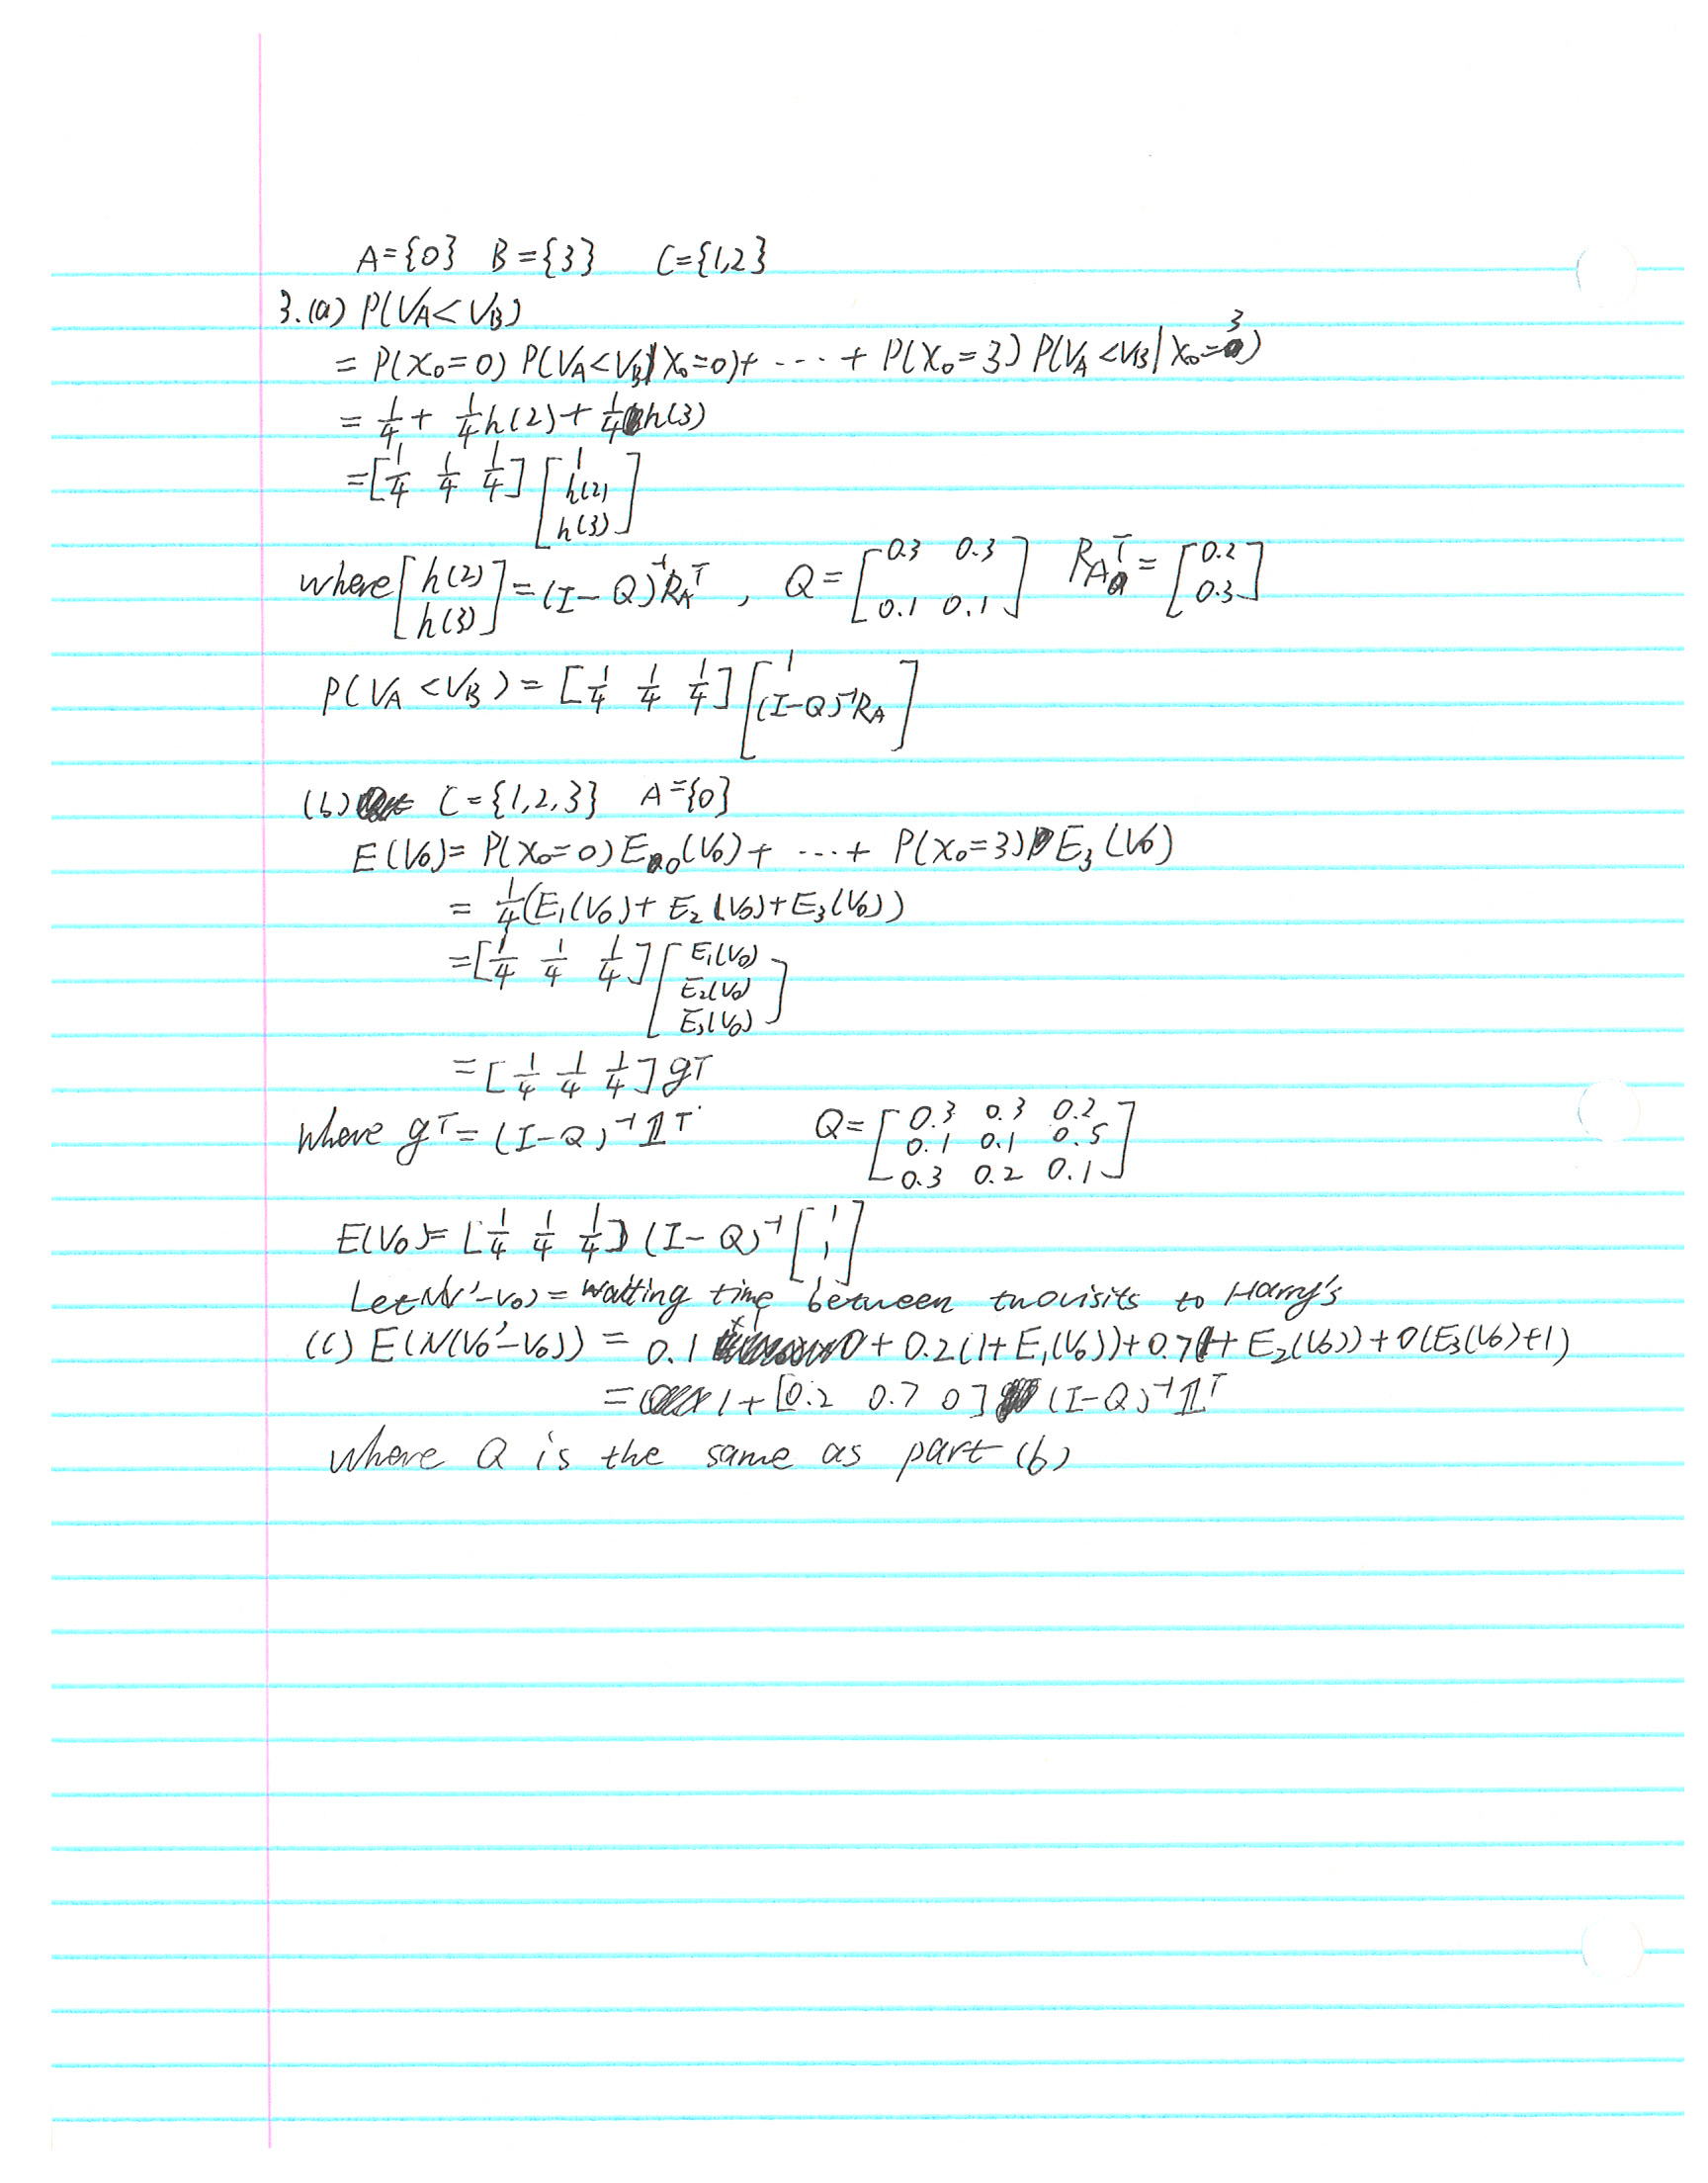 A={0} B={3} C={1,2}
3.(a) P(V_A<V_B)
= P(X_0=0) P(V_A<V_B|X_0=0)+ ··· + P(X_0=3) P(V_A<V_B|X_0=3)
= 1/4 + 1/4 h(2) + 1/4 h(3)
=[1/4 1/4 1/4] [1 h(2) h(3)]
where [h(2) h(3)] = (I-Q)^-1 R_A^T , Q = [0.3 0.3 0.1 0.1] R_A^T = [0.2 0.3]
P(V_A <V_B) = [1/4 1/4 1/4] [1 (I-Q)^-1 R_A]
(b) C={1,2,3} A={0}
E(V_0)= P(X_0=0) E_0(V_0)+ ···+ P(X_0=3) E_3(V_0)
= 1/4(E_1(V_0)+ E_2(V_0)+E_3(V_0))
=[1/4 1/4 1/4] [E_1(V_0) E_2(V_0) E_3(V_0)]
=[1/4 1/4 1/4] g^T
where g^T = (I-Q)^-1 𝟙^T Q=[0.3 0.3 0.2 0.1 0.1 0.5 0.3 0.2 0.1]
E(V_0)= [1/4 1/4 1/4] (I-Q)^-1 [1 1 1]
Let N(v'-v_0) = waiting time between two visits to Harry's
(c) E(N(V_0'-V_0)) = 0.1 × 1 + 0.2(1+E_1(V_0))+0.7(1+ E_2(V_0))+0(E_3(V_0)+1)
= 1+[0.2 0.7 0] (I-Q)^-1 𝟙^T
where Q is the same as part (b)